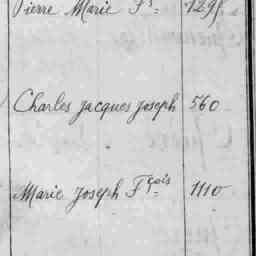 Pierre Marie Fs. 129
Charles Jacques Joseph 560
Marie Joseph Fçois 1110